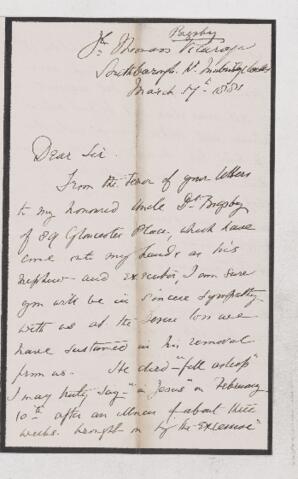 Bigsby
St Thomas Vicarage
Southborough. Nr. Tunbridge Wells
March 17th 1881
Dear Sir.
From the tenor of your letters
to my honoured Uncle Dr. Bigsby
of 89 Gloucester Place, which have
come into my hands as his
nephew and executor, I am sure
you will be in sincere sympathy
with us at the severe loss we
have sustained in his removal
from us. He died "fell asleep"
I may truly say "in Jesus" on February
10th after an illness of about three
weeks. brought on by the excessive